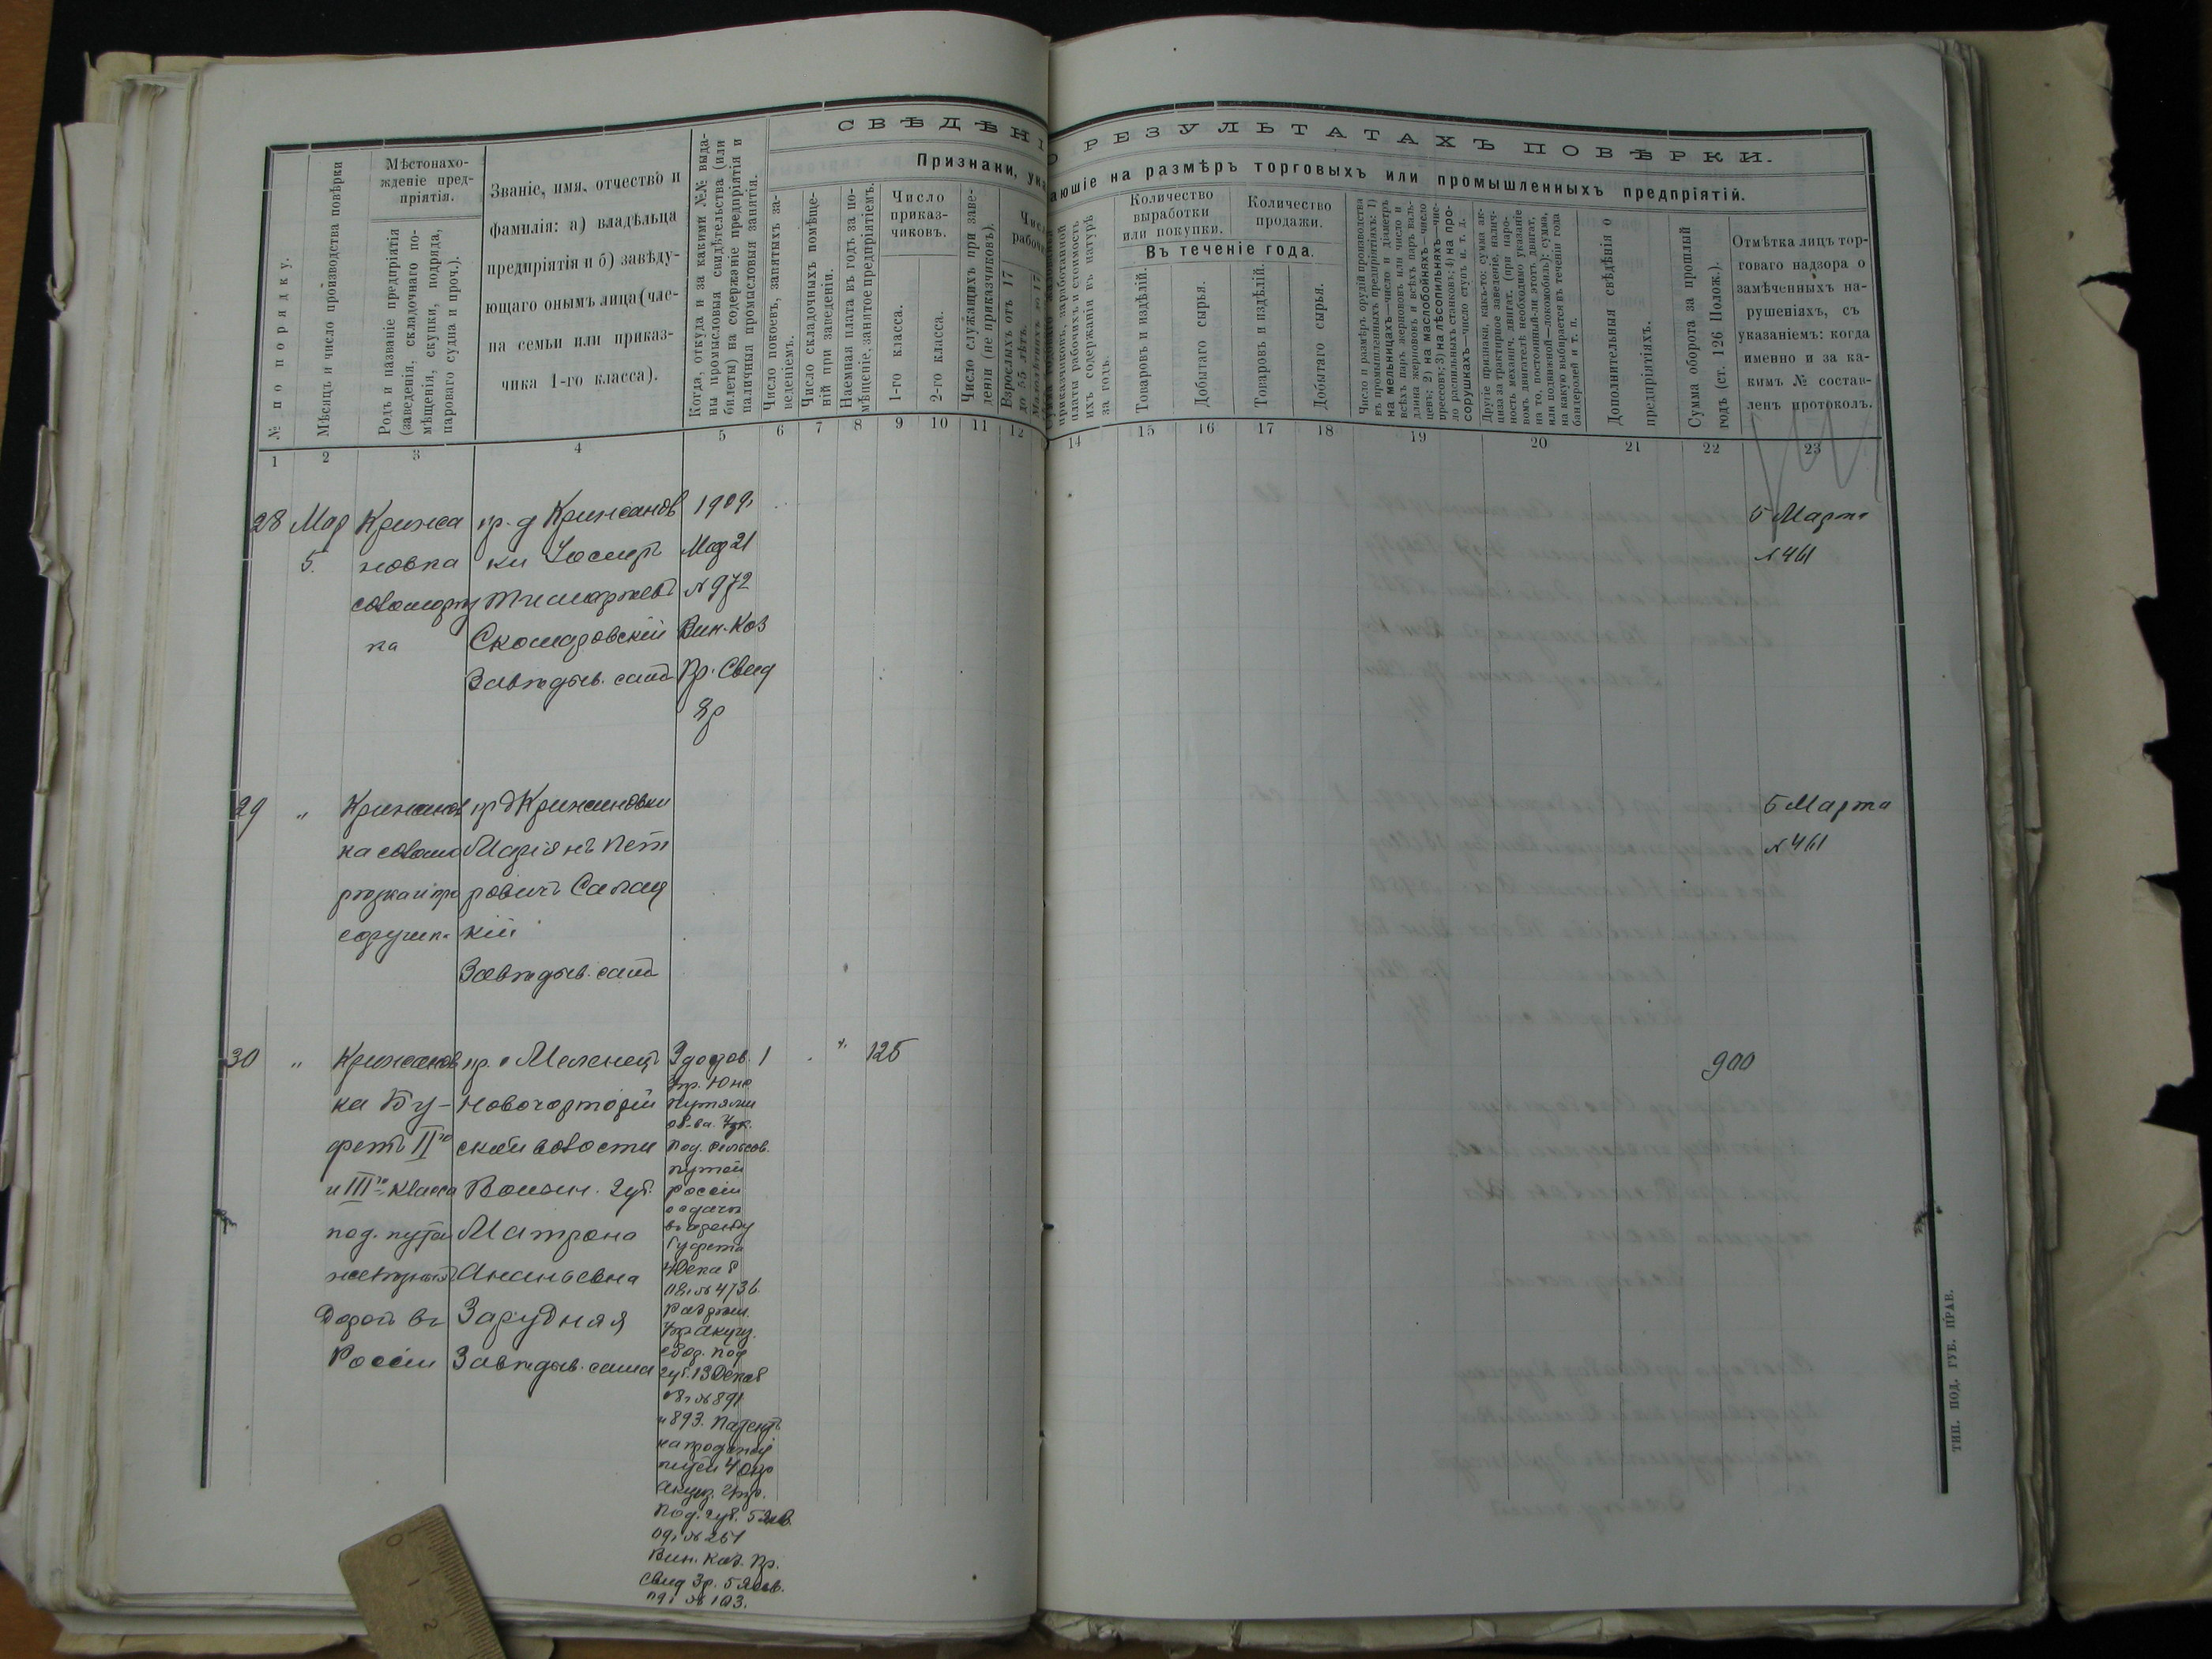 СВѢДѢНІ
О РЕЗУЛЬТАТАХЪ ПОВѢРКИ.
Признаки, ука
ающіе на размѣръ торговыхъ или промышленныхъ предпріятій.
№ по порядку.
Мѣсяцъ и число производства повѣрки
Мѣстонахо-
жденіе пред-
пріятія.
Родъ и названіе предпріятія
(заведенія, складочнаго по-
мѣщенія, скупки, подряда,
пароваго судна и проч.).
Званіе, имя, отчество и
фамилія: а) владѣльца
предпріятія и б) завѣду-
ющаго онымъ лица (чле-
на семьи или приказ-
чика 1-го класса).
Когда, откуда и за какими №№ выда-
ны промысловыя свидѣтельства (или
билеты) на содержаніе предпріятія и
наличныя промысловыя занятія.
Число покоевъ, занятыхъ за-
веденіемъ.
Число складочныхъ помѣще-
ній при заведеніи.
Наемная плата въ годъ за по-
мѣщеніе, занятое предпріятіемъ.
Число
приказ-
чиковъ.
1-го класса.
2-го класса.
Число служащихъ при заве-
деніи (не приказчиковъ).
Чис
рабоч
Взрослыхъ отъ 17
до 55 лѣтъ.
приказчиковъ, заработанной
платы рабочихъ и стоимость
ихъ содержанія въ натурѣ
за годъ.
Количество
выработки
или покупки.
Количество
продажи.
Въ теченіе года.
Товаровъ и издѣлій.
Добытаго сырья.
Товаровъ и издѣлій.
Добытаго сырья.
Число и размѣръ орудій производства
въ промышленныхъ предпріятіяхъ: 1)
на мельницахъ—число и діаметръ
всѣхъ паръ жернововъ или число и
длина жернововъ и всѣхъ паръ валь-
цевъ; 2) на маслобойняхъ—число
прессовъ; 3) на лѣсопильняхъ—чис-
ло распильныхъ станковъ; 4) на про-
сорушкахъ—число ступъ и т. д.
Другіе признаки, какъ-то: сумма ак-
циза за трактирное заведеніе, налич-
ность механич. двигат. (при паро-
вомъ двигателѣ необходимо указаніе
на то, постоянный-ли этотъ двигат.
или подвижной—локомобиль); сумма,
на какую выбирается въ теченіи года
бандеролей и т. п.
Дополнительныя свѣдѣнія о
предпріятіяхъ.
Сумма оборота за прошлый
годъ (ст. 126 Полож.).
Отмѣтка лицъ тор-
говаго надзора о
замѣченныхъ на-
рушеніяхъ, съ
указаніемъ: когда
именно и за ка-
кимъ № состав-
ленъ протоколъ.
1 2 3 4 5 6 7 8 9 10 11 12 14 15 16 17 18 19 20 21 22 23
28 Мар Крижа кр. д Крижанов 1909г 5 Марта
5. новка ки Мар 21 № 461
№ 972
ка Скомаровскій Вин. Каз
Завѣдыв. самъ Пр. Свид
8р
29 " Крижанов кр д Крижановки 5 Марта
ка Маріянъ Пет № 461
ровичъ Сапац
кій
Завѣдыв. самъ
30 " Крижанов кр. 1 " 125 900
ка Бу- Новочарторій
фетъ IIго ской волости
и IIIго класса Волын. губ.
под. путей Матрона
Ананьевна
Дорог въ Зарудная
Россіи Завѣдыв. сама
Договор.
Упр. Юго
Под. рельсов.
путей
Россіи
о сдачѣ
въ аренду
буфета
4 Декаб
08г № 4736.
сбор. Под
губ. 13 Декаб
08г № 891
и 893. Патентъ
питей 4 Окр
Акциз. Упр.
Под. губ. 5 Янв.
09г № 251
Вин. Каз. Пр.
Свид 3р. 5 Янв.
09г № 103.
ТИП. ПОД. ГУБ. ПРАВ.
0 1 2